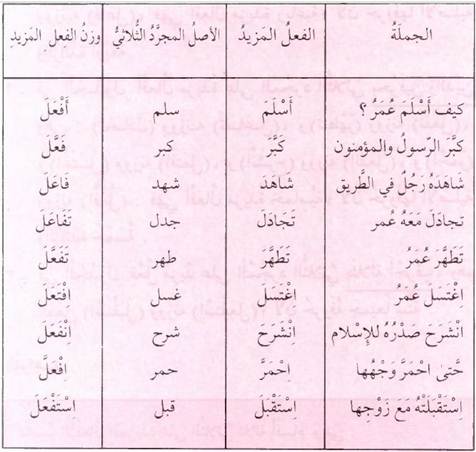 الجملَة الفعلُ المزيدُ الأصلُ المجرَّدُ الثُّلاثيُّ وزنُ الفِعلِ المَزيدِ
كيف أَسْلَمَ عُمَرُ ؟ أَسْلَمَ سلم أَفْعَلَ
كبَّرَ الرسولُ والمؤمنون كَبَّرَ كبر فَعَّلَ
شَاهَدَهُ رَجُلٌ في الطَّريق شَاهَدَ شهد فَاعَلَ
تجادلَ مَعَهُ عُمر تَجَادَلَ جدل تَفَاعَلَ
تَطَهَّرَ عُمَرُ تَطَهَّرَ طهر تَفَعَّلَ
اغْتَسَلَ عُمَرُ اِغْتَسَلَ غسل اِفْتَعَلَ
انْشَرَح صَدْرُهُ للإِسْلام اِنْشَرَحَ شرح اِنْفَعَلَ
حَتَّى احْمَرَّ وَجْهُها اِحْمَرَّ حمر اِفْعَلَّ
اِسْتَقْبَلَتْهُ مَعَ زَوْجِها اِسْتَقْبَلَ قبل اسْتَفْعَلَ